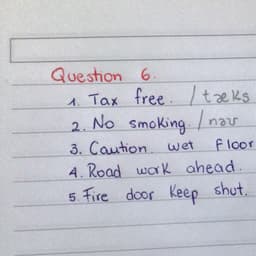 Question 6.
1. Tax free. /tæks
2. No smoking. /nəʊ
3. Caution. wet Floor
4. Road work ahead.
5. Fire door Keep shut.